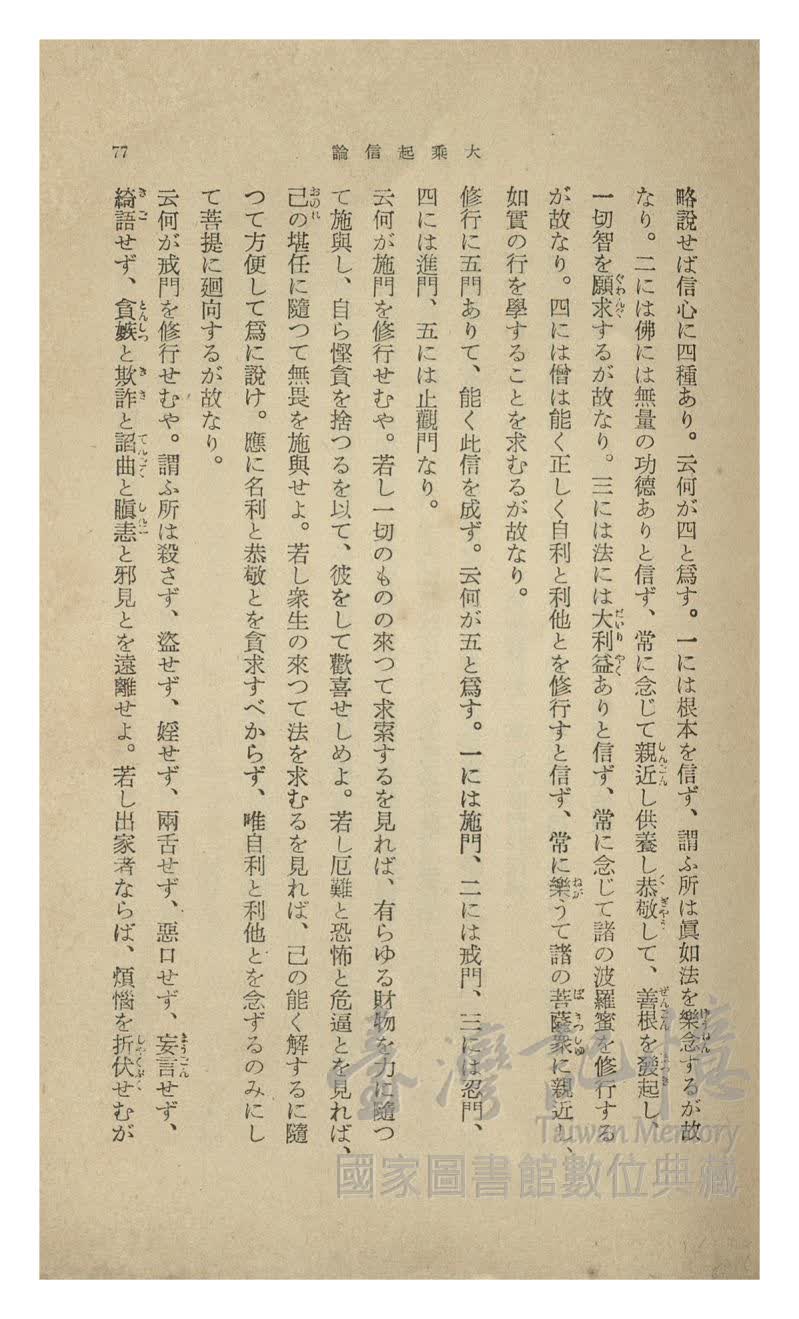 大乘起信論
77
略說せば信心に四種あり。云何が四と爲す。一には根本を信ず、謂ふ所は眞如法を樂念するが故
なり。二には佛には無量の功德ありと信ず、常に念じて親近し供養し恭敬して、善根を發起し、
一切智を願求するが故なり。三には法には大利益ありと信ず、常に念じて諸の波羅蜜を修行する
が故なり。四には僧は能く正しく自利と利他とを修行すと信ず、常に樂うて諸の菩薩衆に親近し、
如實の行を學することを求むるが故なり。
修行に五門ありて、能く此信を成ず。云何が五と爲す。一には施門、二には戒門、三には忍門、
四には進門、五には止觀門なり。
云何が施門を修行せむや。若し一切のものの來つて求索するを見れば、有らゆる財物を力に隨つ
て施與し、自ら慳貪を捨つるを以て、彼をして歡喜せしめよ。若し厄難と恐怖と危逼とを見れば、
己の堪任に隨つて無畏を施與せよ。若し衆生の來つて法を求むるを見れば、己の能く解するに隨
つて方便して爲に說け。應に名利と恭敬とを貪求すべからず、唯自利と利他とを念ずるのみにし
て菩提に廻向するが故なり。
云何が戒門を修行せむや。謂ふ所は殺さず、盜せず、婬せず、兩舌せず、惡口せず、妄言せず、
綺語せず、貪嫉と欺詐と諂曲と瞋恚と邪見とを遠離せよ。若し出家者ならば、煩惱を折伏せむが
臺灣記憶
Taiwan Memory
國家圖書館數位典藏